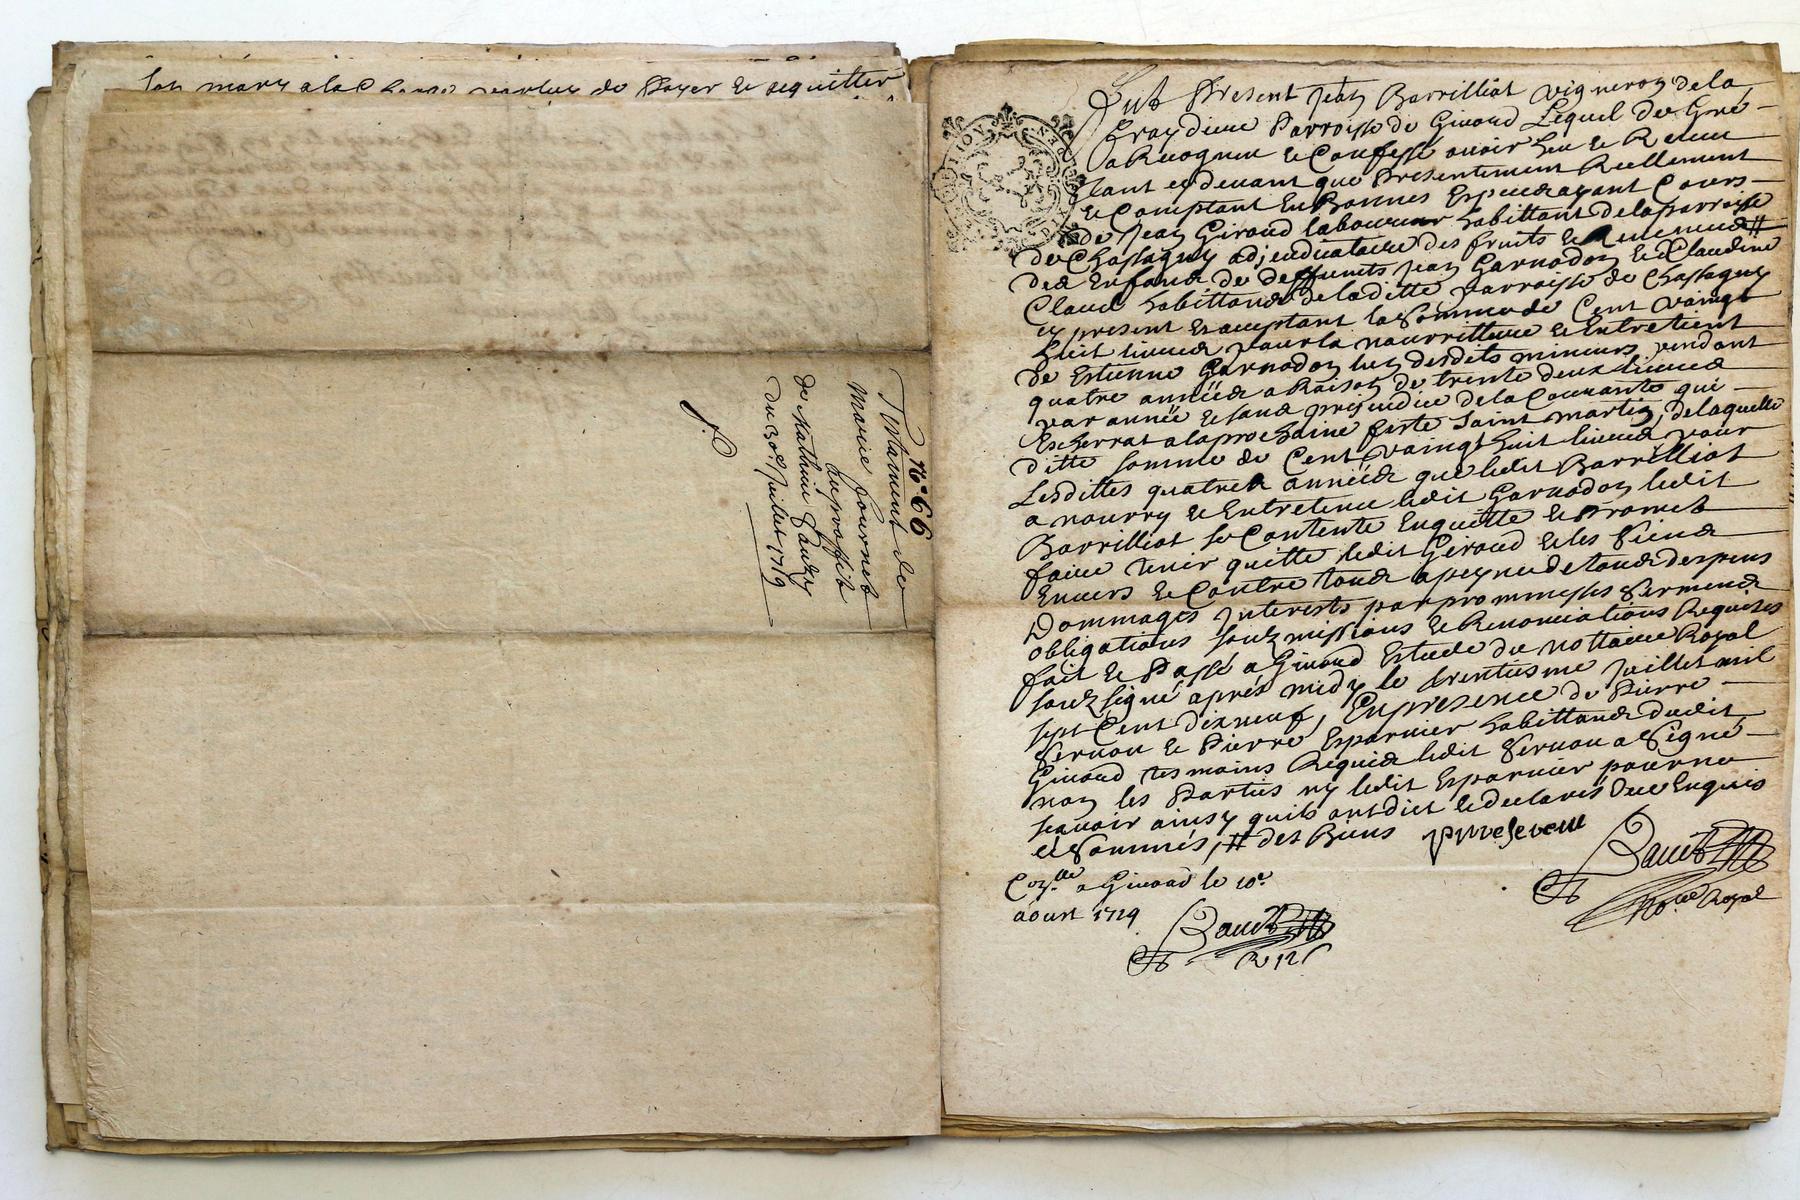 son mary a la charge de payer et acquitter
n.° 66
Testament de
Marie fournet
Au proffit
de Mathieu
Du 30.e Juillet 1719
GENERALITE DE LYON
Fut Present Jean Barrilliat vigneron de la
Parroisse de Givord Lequel de Gré
a Recogneu et Confessé avoir heu et Receu
tant cy devant que Presentement Reellement
et Comptant En Bonnes Especes ayant Cours
de Jean Giroud laboureur habittant de la parroisse
de Chassagny adjudicataire des fruits et Revenus #
des Enfans de deffunts Jean Garnodon et Claudine
Claud habittans de la ditte parroisse de Chassagny
cy present et acceptant la Somme de Cent vaingt
huit livres pour la nourritture et Entretient
de Estienne Garnodon lun desdits mineurs pendant
quatre années a Raison de trente deux livres
par année et sans préjudice de la Courante qui
Escherrat a la prochaine feste Saint martin, de laquelle
ditte somme de Cent vaingt huit livres pour
Lesdittes quatres années que ledit Barrilliat
a nourry et Entretenu ledit Garnodon ledit
Barrilliat se Contente Enquitte et Promet
faire tenir quitte ledit Giroud et les Siens
Envers et Contre tous a peyne de tous despens
Dommages Interests par prommesses Sermens
obligations soubmissions et Renonciations Requises
fait et Passé a Givord Estude du nottaire Royal
soubsigné aprés midy le trentiesme Juillet mil
sept Cent dixneuf, En presence de Pierre
Servan et Pierre Esparnier habittans dudit
Givord tesmoins Requis ledit Servan a Signé
non les Parties ny ledit Esparnier pour ne
scavoir ainsy quils ont dict et declarés Due Enquis
et Sommés, # des Biens
a Givord le 10.e
aoust 1719
R 12 s
no.re Royal